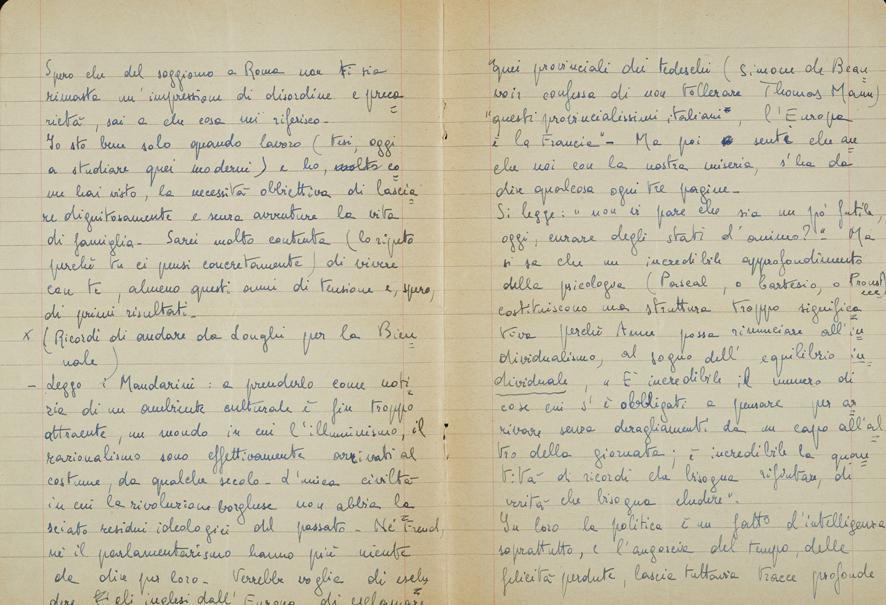 Spero che del soggiorno a Roma non ti sia
rimasta un'impressione di disordine e preca
rietà, sai a che cosa mi riferisco -
Io sto bene solo quando lavoro (tesi, oggi
a studiare quei moderni) e ho, molto co
me hai visto, la necessità obbiettiva di lascia
re dignitosamente e senza avventure la vita
di famiglia - Sarei molto contenta (lo ripeto
perchè tu ci pensi concretamente) di vivere
con te, almeno questi anni di tensione e, spero,
di primi risultati -
x (Ricordi di andare da Longhi per la Bien
nale)
- Leggo i Mandarini: a prenderlo come noti
zia di un ambiente culturale è fin troppo
attraente, un mondo in cui l'illuminismo, il
razionalismo sono effettivamente arrivati al
costume, da qualche secolo - L'unica civiltà
in cui la rivoluzione borghese non abbia la
sciato residui ideologici del passato - Né Freud,
né il parlamentarismo hanno più niente
da dire per loro - Verrebbe voglia di esclu
dere gli inglesi dall'Europa, di esclamare
"quei provinciali dei tedeschi (Simone de Beau
voir confessa di non tollerare Thomas Mann)
"questi provincialissimi italiani", l'Europa
è la Francia" - Ma poi senti che an
che noi con la nostra miseria, s'ha da
dire qualcosa ogni tre pagine -
Si legge: "non vi pare che sia un pò futile,
oggi, curare degli stati d'animo?" Ma
si sa che un incredibile approfondimento
della psicologia (Pascal, o Cartesio, o Proust)
costituiscono una struttura troppo significa
tiva perchè Anne possa rinunciare all'in
dividualismo, al sogno dell'equilibrio in
dividuale, "È incredibile il numero di
cose cui s'è obbligati a pensare per ar
rivare senza deragliamenti da un capo all'al
tro della giornata; è incredibile la quan
tità di ricordi che bisogna rifiutare, di
verità che bisogna eludere".
In loro la politica è un fatto d'intelligenza
soprattutto, e l'angoscia del tempo, delle
felicità perdute, lascia tuttavia tracce profonde